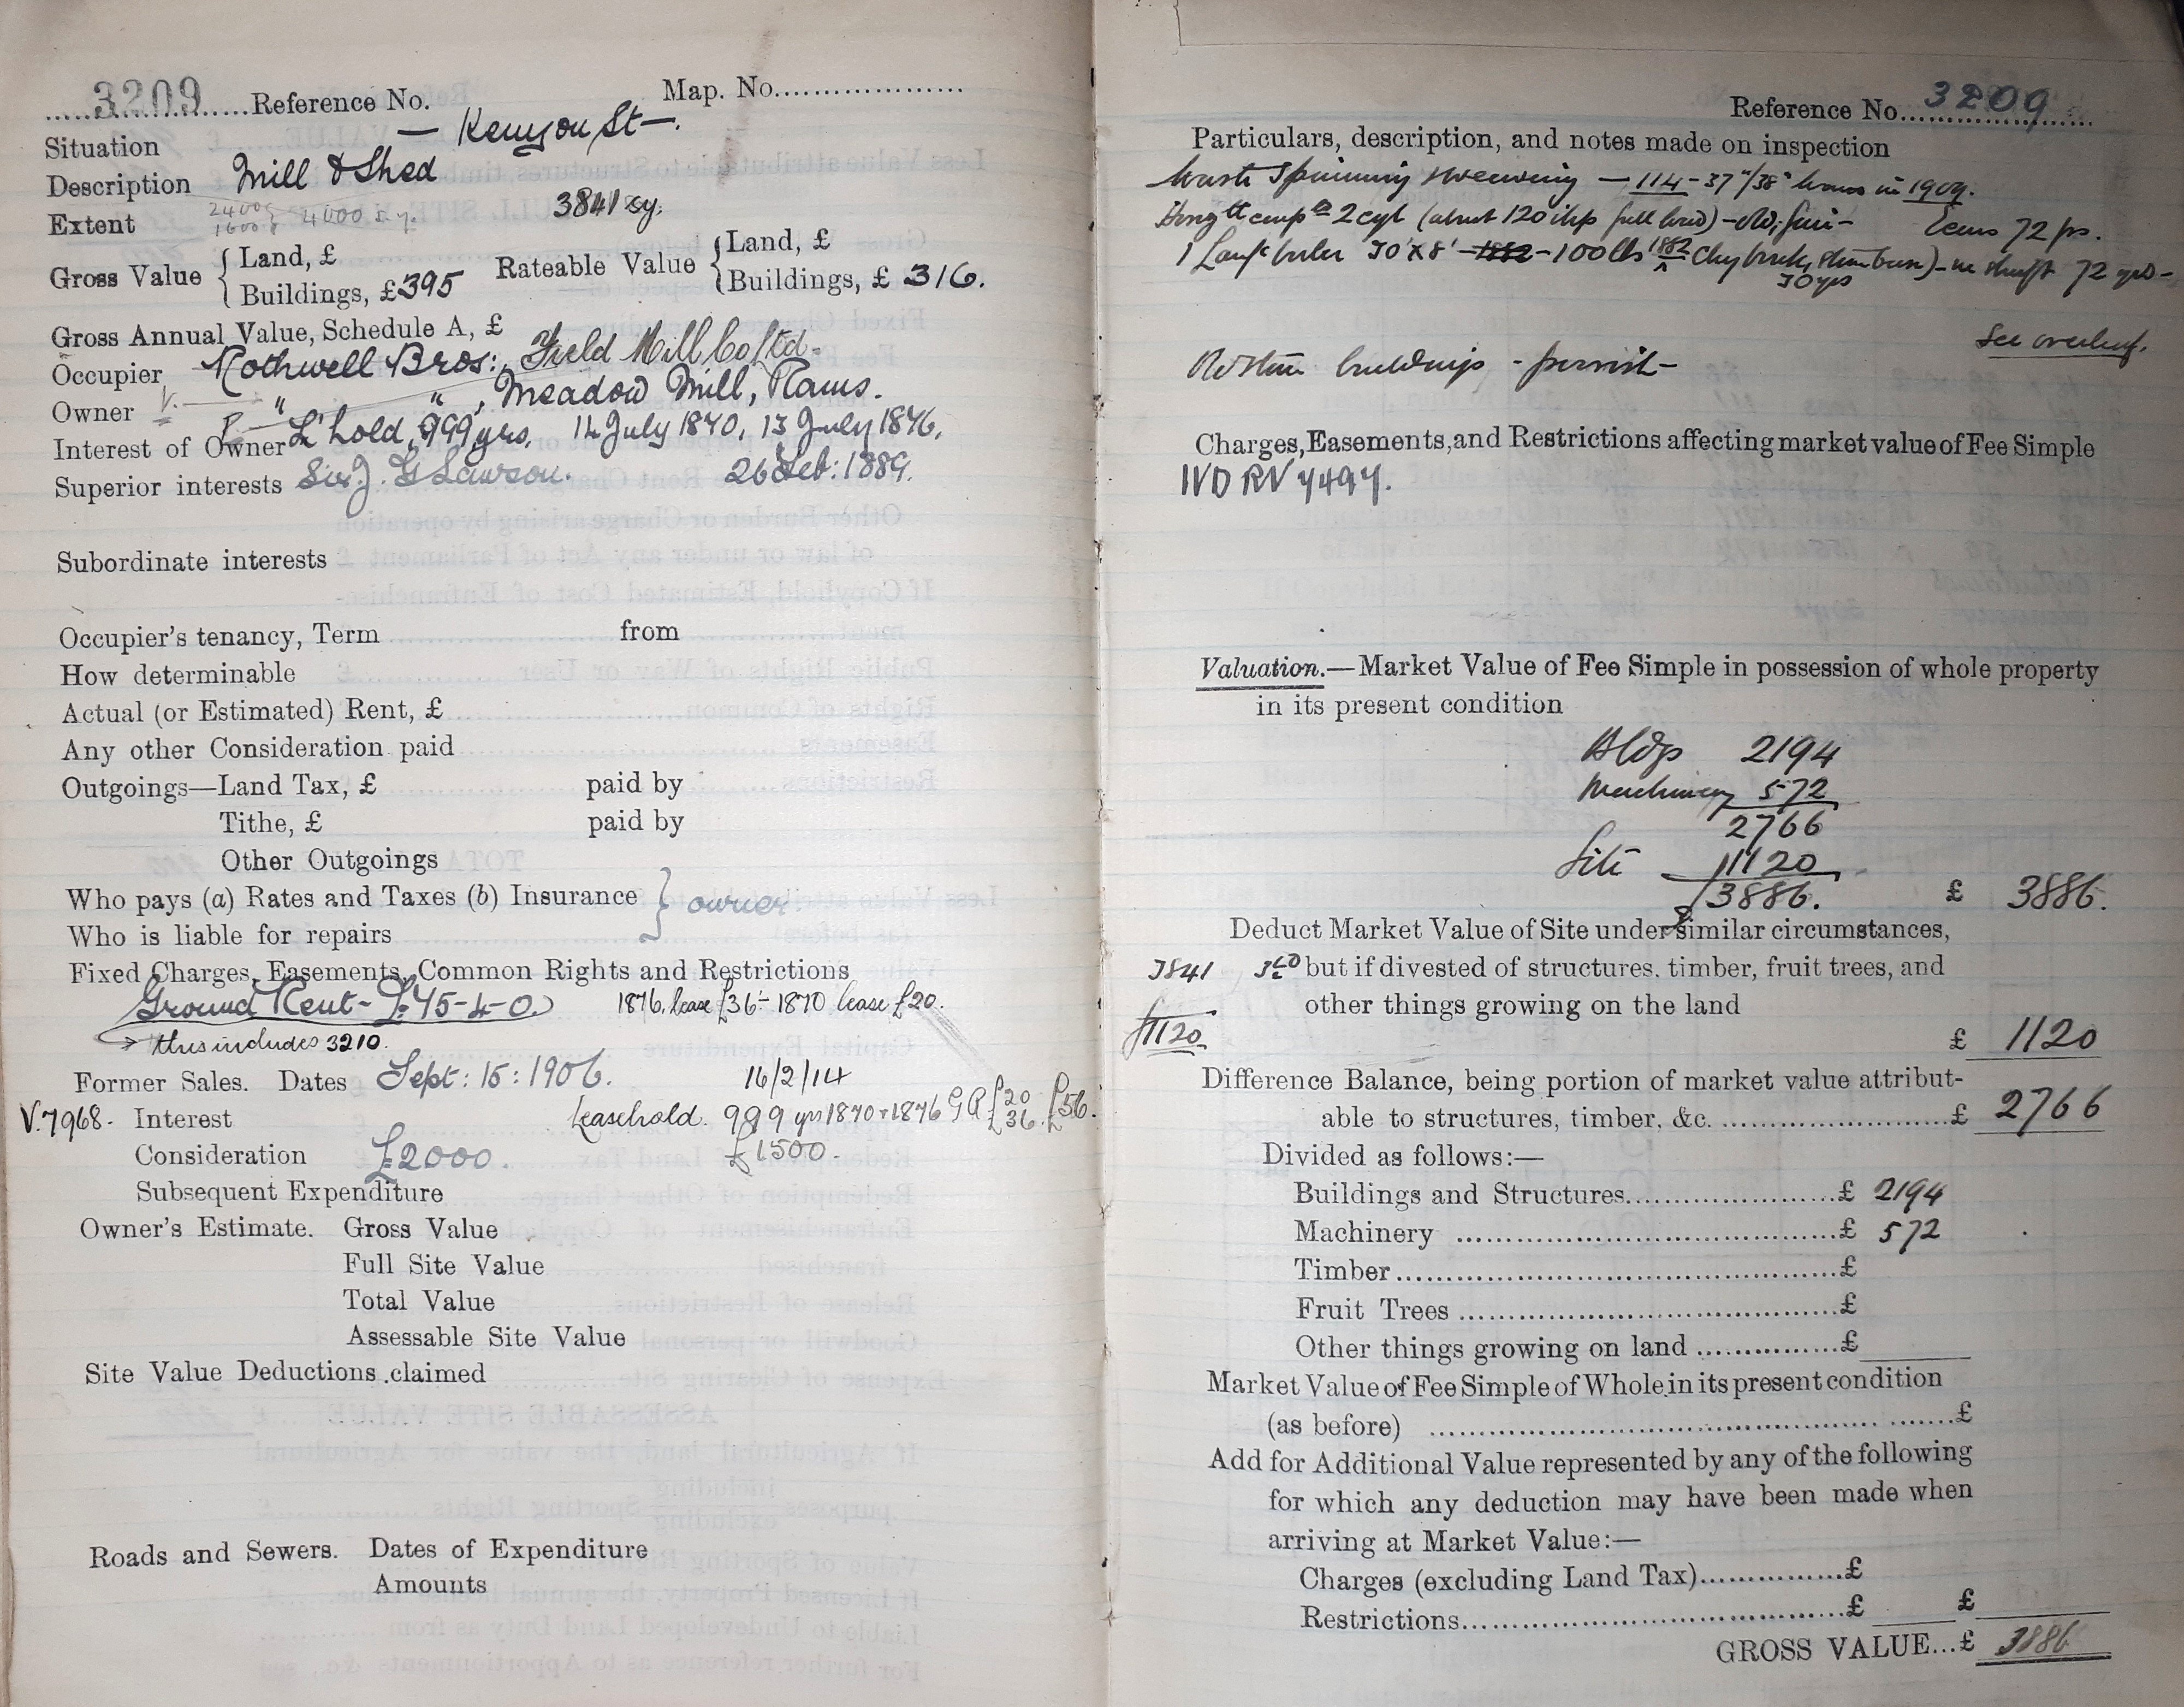 3209 Reference No. Map. No.
Situation — Kenyon St —.
Description Mill & Shed
Extent 4000 s.y. 3841 sy.
Gross Value { Land, £ Rateable Value { Land, £
Buildings, £395 Buildings, £ 316.
Gross Annual Value, Schedule A, £
Occupier Rothwell Bros: Field Mill Co Ltd.
Owner " " , Meadow Mill, Rams.
Interest of Owner L'hold, 999 yrs, 14 July 1870, 13 July 1876,
Superior interests Sir J. G Lawson. 26 Feb: 1889.
Subordinate interests
Occupier's tenancy, Term from
How determinable
Actual (or Estimated) Rent, £
Any other Consideration paid
Outgoings—Land Tax, £ paid by
Tithe, £ paid by
Other Outgoings
Who pays (a) Rates and Taxes (b) Insurance } owner.
Who is liable for repairs
Fixed Charges, Easements, Common Rights and Restrictions
Ground Rent - £75-4-0 1876 lease £36 - 1870 lease £20.
this includes 3210.
Former Sales. Dates Sept: 15: 1906. 16/2/14
V.7968. Interest Leasehold. 999 yrs 1870 + 1876 G R £20 £36. £56.
Consideration £2000. £1500.
Subsequent Expenditure
Owner's Estimate. Gross Value
Full Site Value
Total Value
Assessable Site Value
Site Value Deductions claimed
Roads and Sewers. Dates of Expenditure
Amounts
Reference No. 3209
Particulars, description, and notes made on inspection
Waste Spinning & weaving — 114 - 37"/38" looms in 1909.
2 cyl (about 120 ihp full load) - old, fair - 72 ps.
1 Lanc boiler 30' x 8' - 1882 - 100 lbs 1882 - shaft 72 yds -
30 yrs
See overleaf.
buildings -
Charges, Easements, and Restrictions affecting market value of Fee Simple
IVD RV 7497.
Valuation.—Market Value of Fee Simple in possession of whole property
in its present condition
Bldgs 2194
Machinery 572
2766
Site 1120
£3886. £ 3886.
Deduct Market Value of Site under similar circumstances,
3841 but if divested of structures, timber, fruit trees, and
other things growing on the land
£1120 £ 1120
Difference Balance, being portion of market value attribut-
able to structures, timber, &c. £ 2766
Divided as follows:—
Buildings and Structures £ 2194
Machinery £ 572
Timber £
Fruit Trees £
Other things growing on land £
Market Value of Fee Simple of Whole in its present condition
(as before) £
Add for Additional Value represented by any of the following
for which any deduction may have been made when
arriving at Market Value:—
Charges (excluding Land Tax) £
Restrictions £ £
GROSS VALUE...£ 3886